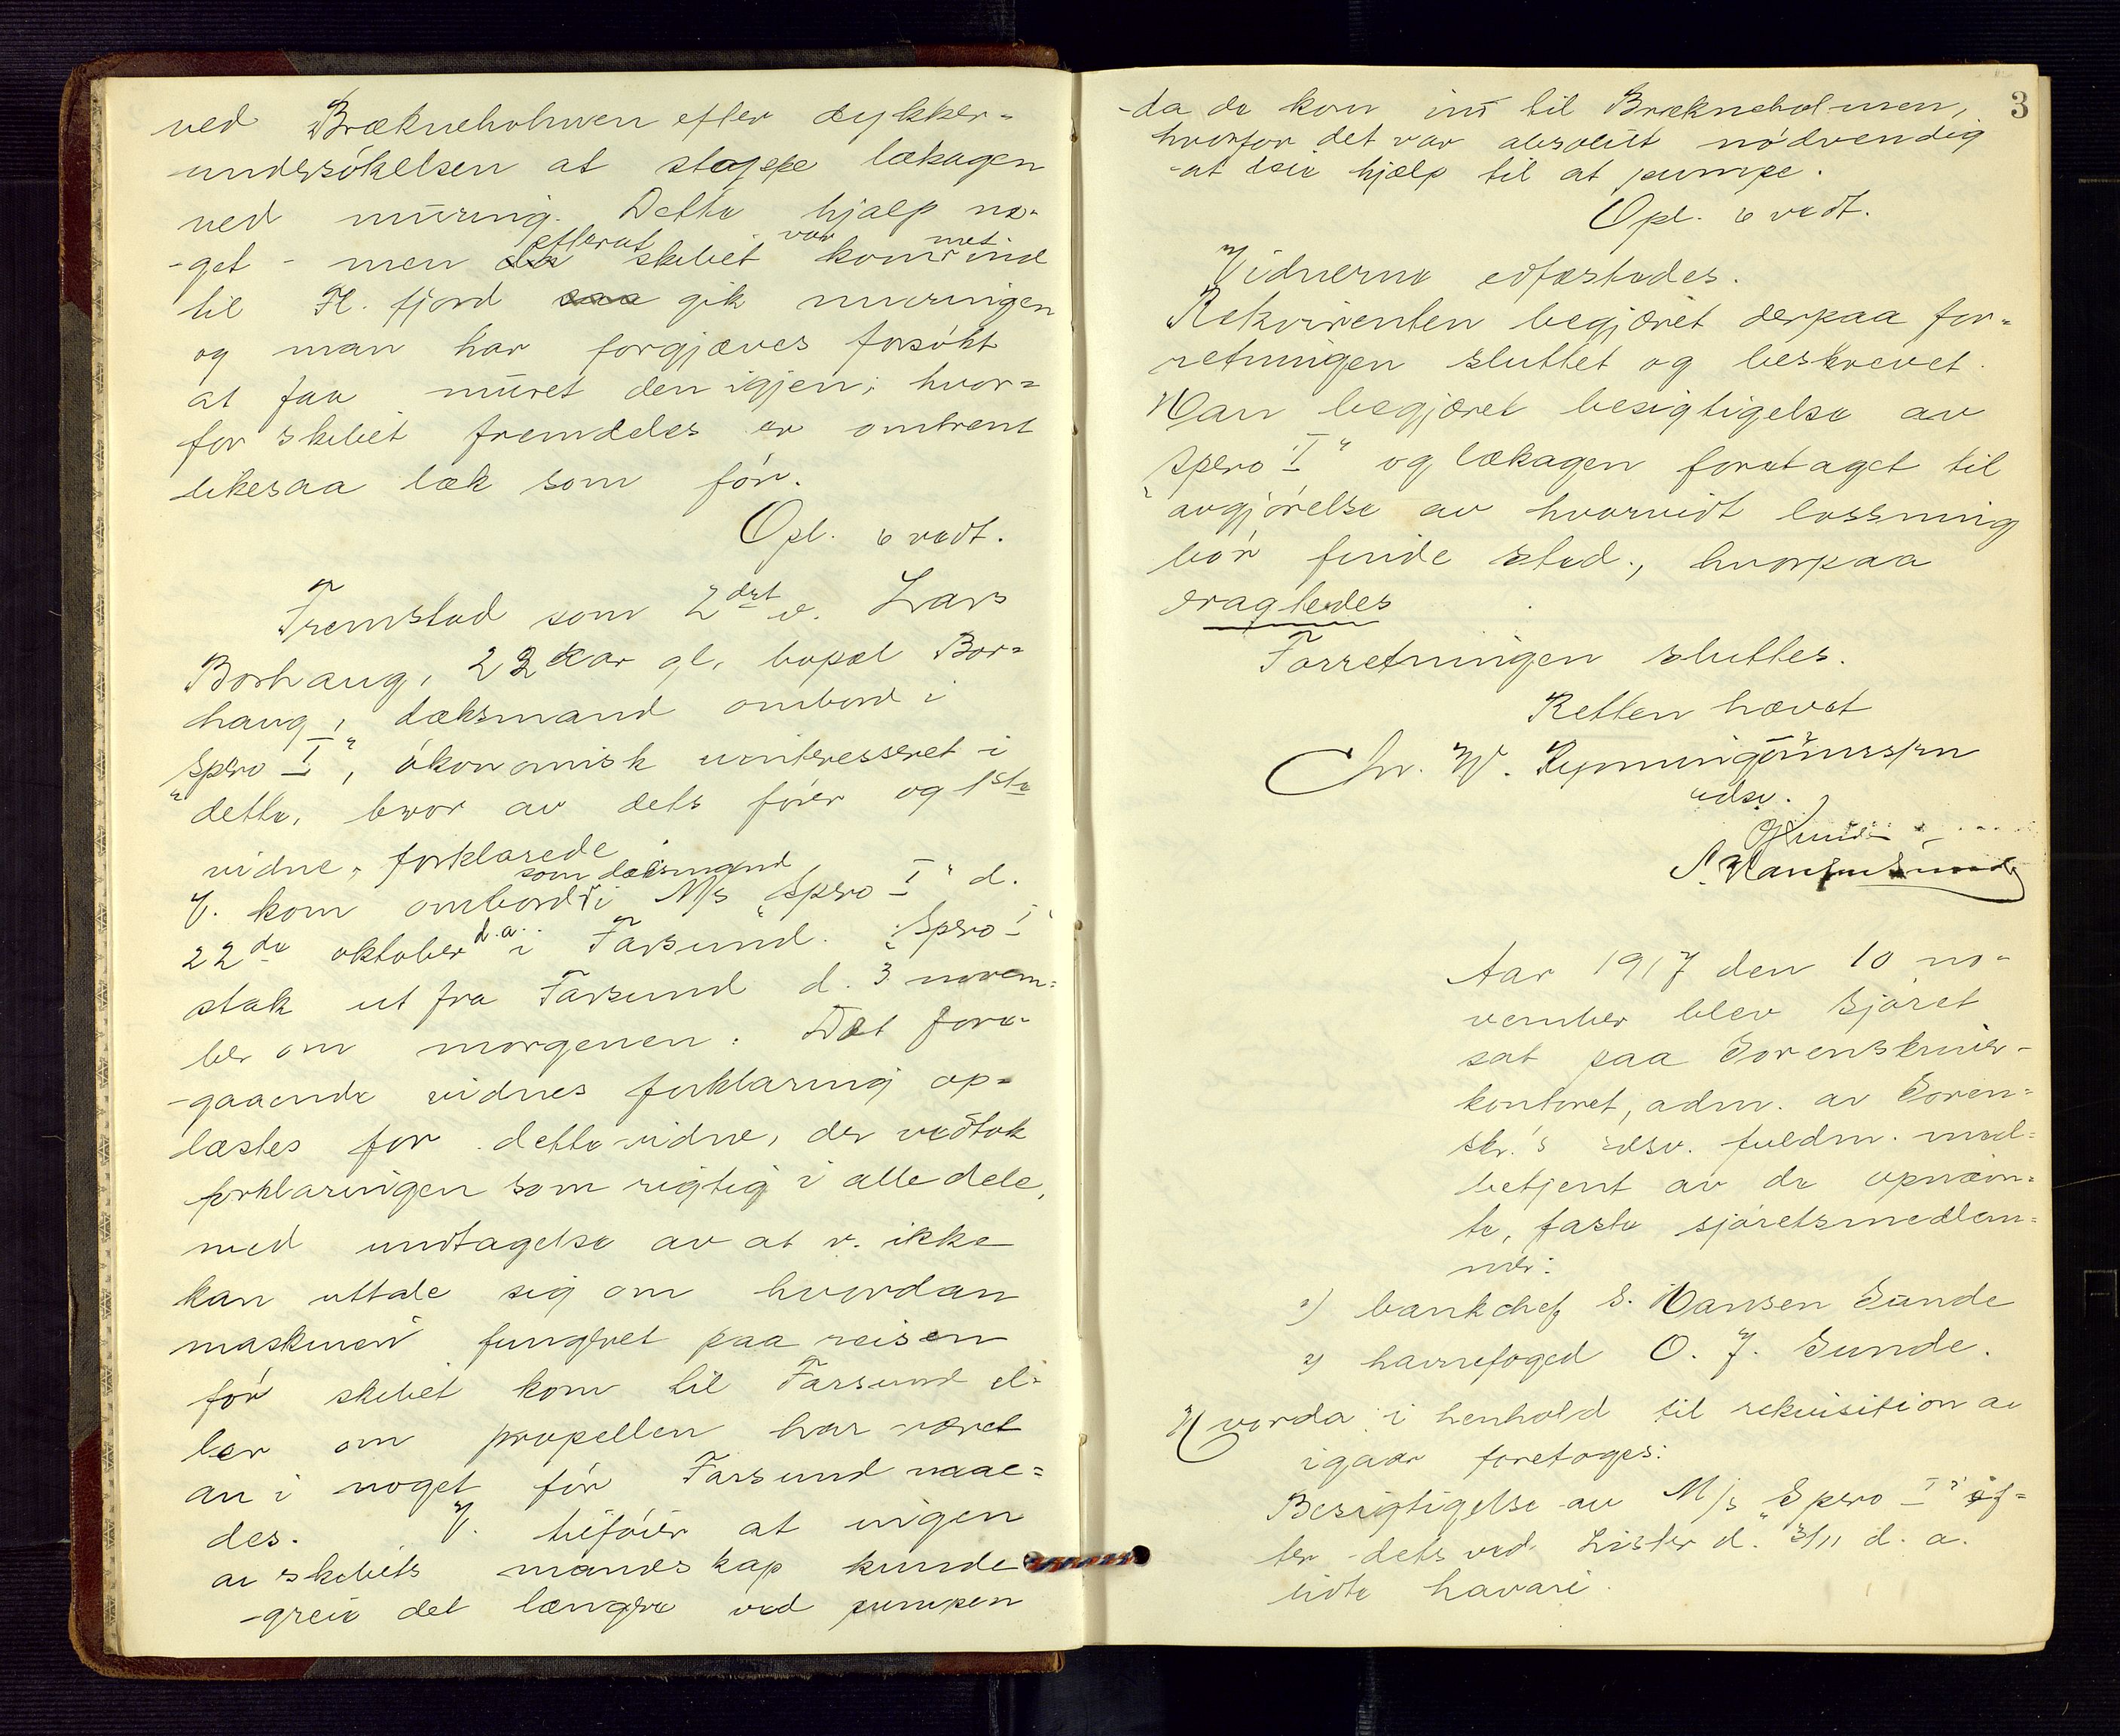 ved Brækneholmen efter dykker=
undersökelsen at stoppe lækagen
ved muring. Dette hjalp no-
-get - men efterat skibet var kommet ind
til Fl. fjord saa gik muringen
og man har forgjæves forsökt
at faa muret den igjen; hvor=
for skibet fremdeles er omtrent
likesaa læk som för.
Opl. & vedt.
Fremstod som 2det v. Lars
Borhaug, 22 aar gl, bopæl Bor=
haug, dæksmand ombord i
"Spero I", ökonomisk uinteresseret i
dette, bror av dets förer og 1ste
vidne, forklarede
som dæksmand
V. kom ombord i M/s "Spero I" d.
22de oktober d.a. i Farsund. "Spero I"
stak ut fra Farsund d. 3 novem=
ber om morgenen. Det fore-
-gaaende vidnes forklaring op=
læstes for dette vidne, der vedtok
forklaringen som rigtig i alle dele,
med undtagelse av at v. ikke
kan uttale sig om hvordan
maskinen fungeret paa reisen
för skibet kom til Farsund el=
ler om propellen har været
an i noget för Farsund naae=
des. V. tilföier at ingen
av skibets mandskap kunde
-greie det længere ved pumpen
3
-da de kom inn til Brækneholmen,
hvorfor det var absolut nödvendig
-at leie hjælp til at pumpe.
Opl. & vedt.
Vidnerne edfæstedes.
Rekvirenten begjæret derpaa for=
retningen sluttet og beskrevet.
Han begjæret besigtigelse av
"Spero I" og lækagen foretaget til
avgjörelse av hvorvidt lossning
bör finde sted., hvorpaa
eragtedes
Forretningen sluttes.
Retten hævet
Chr. W.
edsv.
OJSunde
S. Hansen Sunde
Aar 1917 den 10 no-
vember blev Sjöret
sat paa Sorenskriver-
kontoret, adm. av Soren=
skr.'s edsv. fuldm. med=
betjent av de opnævn=
te, faste sjöretsmedlem=
mer:
1) bankchef S. Hansen Sunde
2) havnefoged O. J. Sunde.
Hvorda i henhold til rekvisition av
igaar foretoges:
Besigtigelse av M/s "Spero I" ef=
ter dets ved Lister d. 3/11 d. a.
lidte havari.